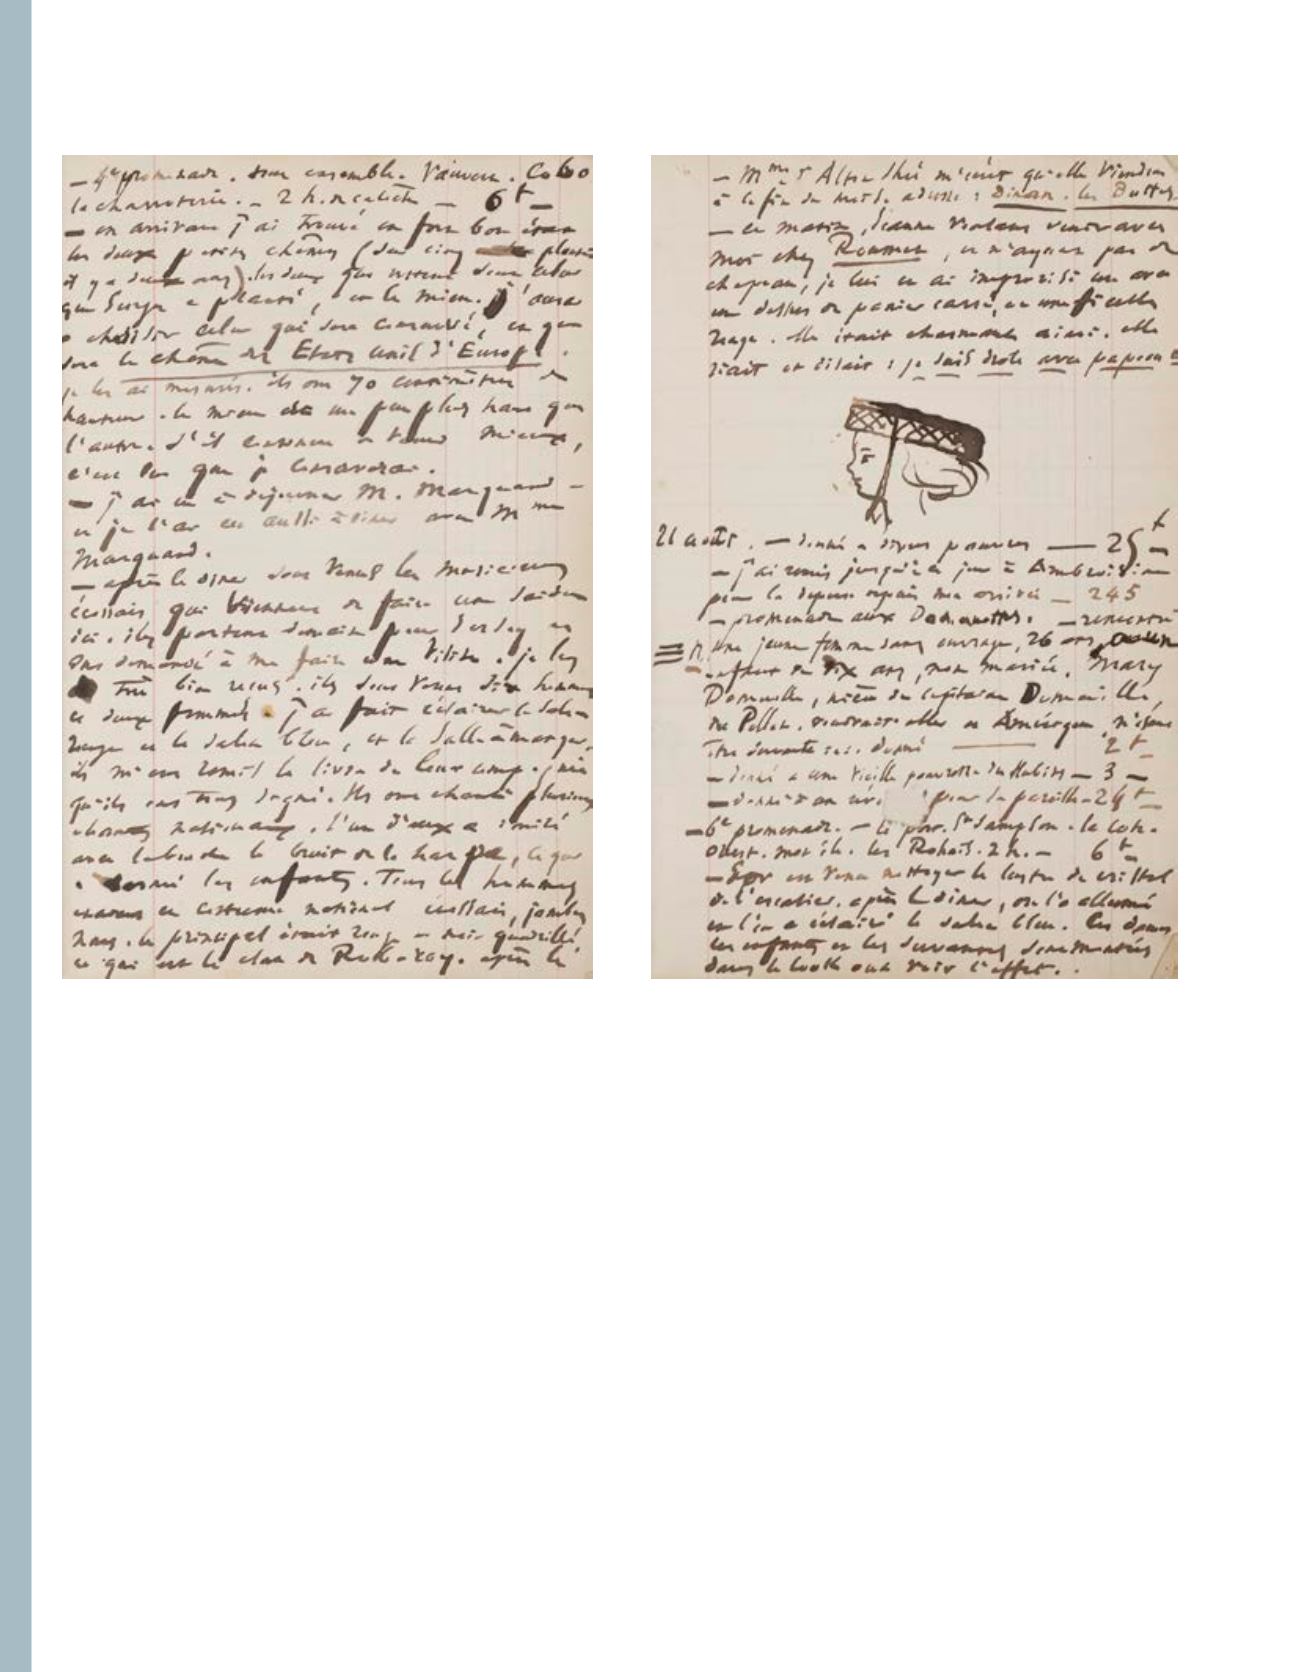 — 4e promenade. tous ensemble. Vauvert. Cobo
la charroterie. — 2 h. de calèche — 6f —
— en arrivant j'ai trouvé en fort bon état
les deux petits chênes (des cinq plantés
il y a deux ans). les deux qui restent sont celui
que Georges a planté, et le mien. J'aurai
à choisir celui qui sera conservé, et qui
sera le chêne des États Unis d'Europe.
je les ai mesurés. ils ont 70 centimètres de
hauteur. le mien est un peu plus haut que
l'autre. s'il continue à venir mieux,
c'est lui que je conserverai.
— j'ai eu à déjeuner M. Marquand —
et je l'ai eu aussi à dîner avec Mme
Marquand.
— après le dîner sont venus les musiciens
écossais qui viennent de faire une saison
ici. ils partent demain pour Jersey et
ont demandé à me faire une visite. je les
ai très bien reçus. ils sont venus dix hommes
et deux femmes. j'ai fait éclairer le salon
rouge et le salon bleu, et la salle à manger.
ils m'ont remis le livre de leur
qu'ils ont tous signé. Ils ont chanté plusieurs
nationaux. l'un d'eux a imité
avec la bouche le bruit de la harpe, ce qui
a les enfants. Tous les hommes
étaient en costume national écossais, jambes
nues. le principal était rouge et noir quadrillé
ce qui est le clan de Rob-roy. après le
— Mme Alice m'écrit qu'elle viendra
à la fin du mois. adresse : Dinan. les Buttes
— ce matin, Jeanne voulant venir avec
moi chez Roumer, et n'ayant pas de
chapeau, je lui en ai improvisé un avec
un dessus de panier carré, et une ficelle
rouge. elle était charmante ainsi. elle
riait et disait : je suis drole avec papeau
21 août. — donné à divers pauvres — 25f —
— j'ai remis jusqu'à ce jour à Ambroisine
pour la dépense depuis mon arrivée — 245
— promenade aux Damouettes. — rencontré
une jeune femme sans ouvrage, 26 ans,
enfant de dix ans, non mariée. Mary
Domaille, nièce du capitaine Domaille,
du Pollet. voudrait aller en Amérique,
être servante donné — 2f
— donné à une vieille pauvresse du — 3 —
— donné pour la pareille — 24f —
— 6e promenade. — le port. St Sampson. la côte
ouest. les Rohais. 2 h. — 6f —
— on est venu nettoyer le lustre de cristal
de l'escalier. après le dîner, on l'a allumé
et l'on a éclairé le salon bleu. les dames
les enfants et les servantes sont montées
dans le look out voir l'effet.